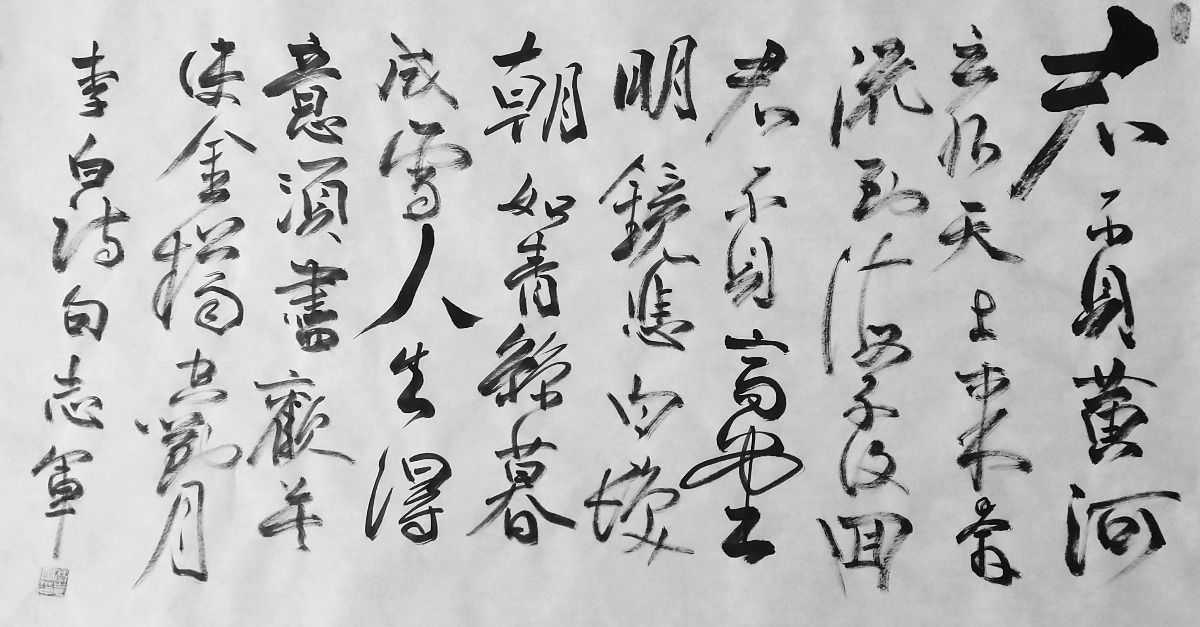 君不見黄河
之水天上来奔
流到海不復回
君不見高堂
明鏡悲白髮
朝如青絲暮
成雪人生得
意須盡歡莫
使金樽空對月
李白詩句志軍